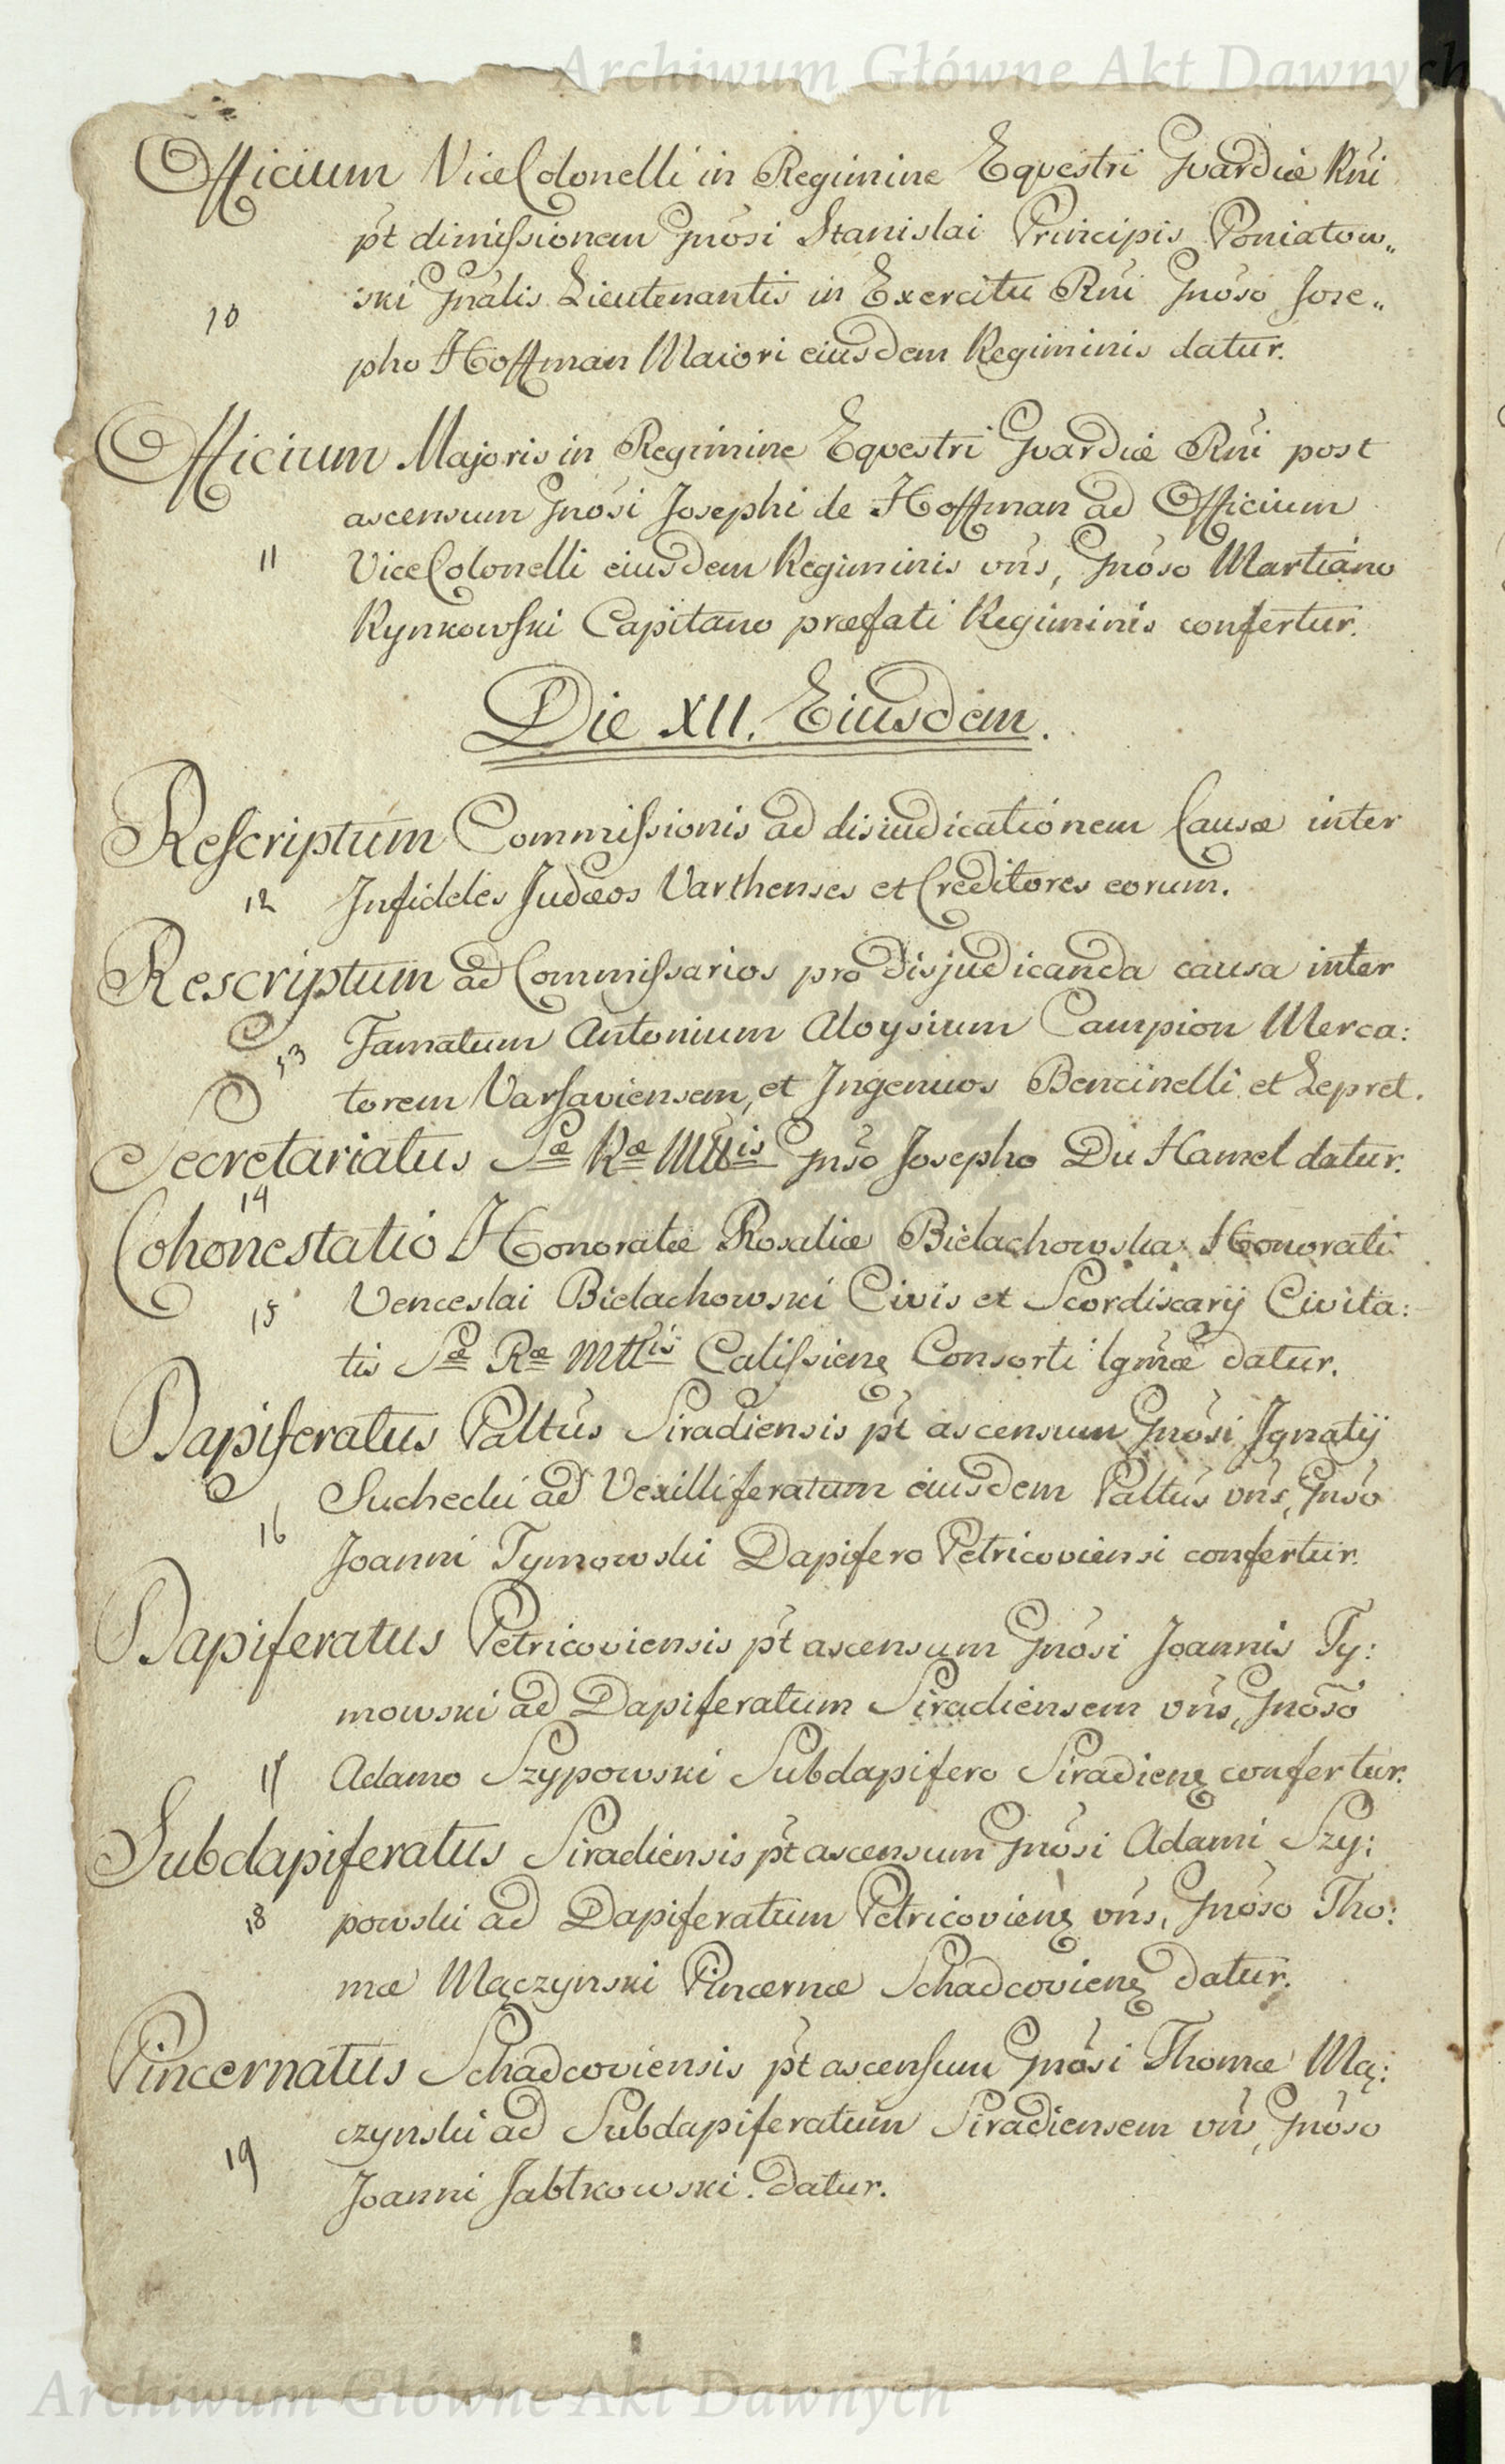 Archiwum Główne Akt Dawnych
Officium ViceColonelli in Regimine Eqvestri Gvardiæ Rni
pt dimissionem Gnosi Stanislai Principis Poniatow„
ski Gnalis Lieutenantis in Exercitu Rni Gnoso Jose„
10
pho Hoffman Maiori eiusdem Regiminis datur.
Officium Majoris in Regimine Eqvestri Gvardiæ Rni post
ascensum Gnosi Josephi de Hoffman ad Officium
11 ViceColonelli eiusdem Regiminis vns, Gnoso Martiano
Rynkowski Capitano præfati Regiminis confertur.
Die XII. Eiusdem.
Rescriptum Commissionis ad disiudicationem Causæ inter
12 Infideles Judæos Varthenses et Creditores eorum.
Rescriptum ad Commissarios pro disjudicanda causa inter
13 Famatum Antonium Aloysium Campion Merca:
torem Varsaviensem, et Ingenuos Bencinelli et Lepret.
Secretariatus Sæ Ræ Mttis Gnso Josepho Du Hamel datur.
14
Cohonestatio Honoratæ Rosaliæ Bielachowska Honorati
15 Venceslai Bielachowski Civis et Scordiscarij Civita:
tis Sæ Ræ Mttis Calissienę Consorti lgmæ datur.
Dapiferatus Paltus Siradiensis pt ascensum Gnosi Ignatij
Suchecki ad Vexilliferatum eiusdem Paltus vns, Gnso
16
Joanni Tymowski Dapifero Petricoviensi confertur.
Dapiferatus Petricoviensis pt ascensum Gnosi Joannis Ty:
mowski ad Dapiferatum Siradiensem vns, Gnoso
17 Adamo Szypowski Subdapifero Siradienę confertur.
Subdapiferatus Siradiensis pt ascensum Gnosi Adami Szy:
18 powski ad Dapiferatum Petricovienę vns, Gnoso Tho:
mæ Mączynski Pincernæ Schadcovienę datur.
Pincernatus Schadcoviensis pt ascensum Gnosi Thomæ Mą:
czynski ad Subdapiferatum Siradiensem vns, Gnoso
19
Joanni Jabłkowski datur.
Archiwum Główne Akt Dawnych